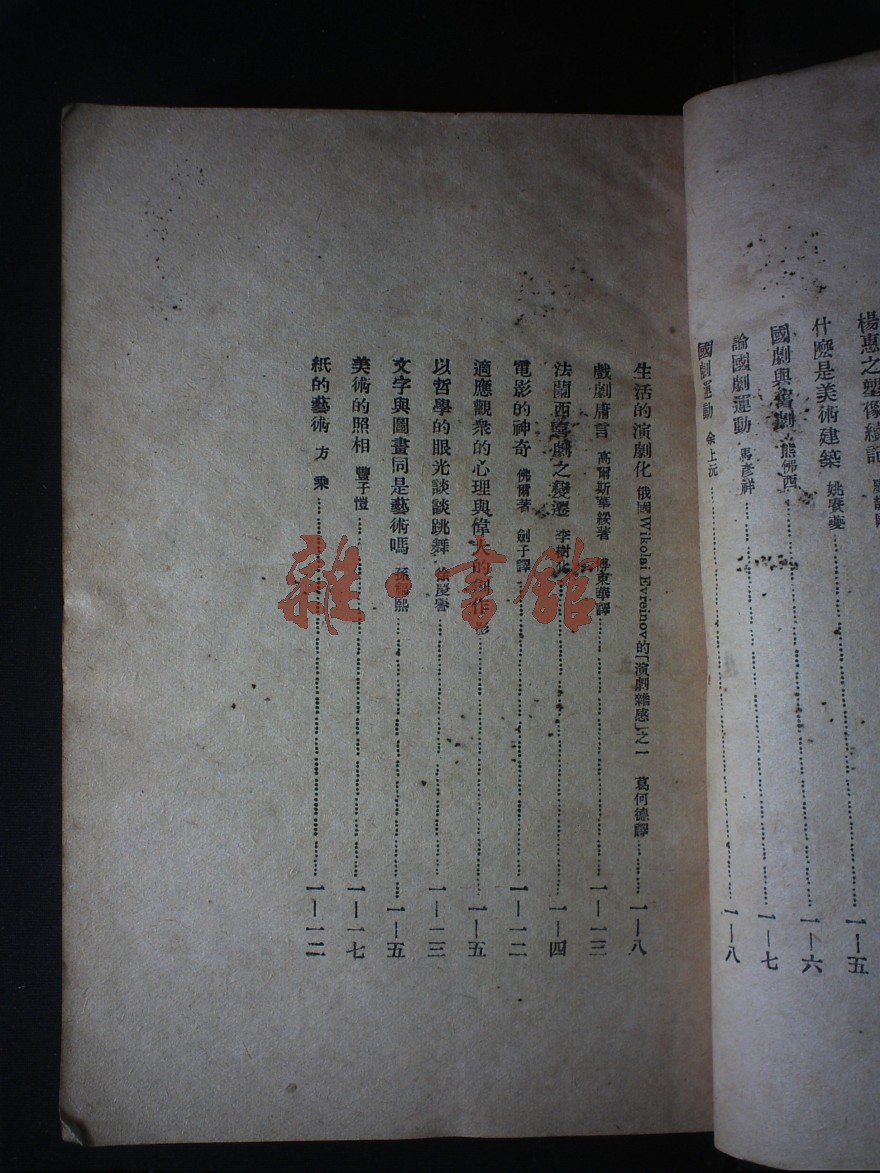 楊惠之塑像續記
什麽是美術建築 姚賡夔………一—六
國劇與舊劇 熊佛西………一—七
論國劇運動 馬彥祥………一—八
國劇運動 余上沅………
生活的演劇化 俄國Wikolai Evreinov的「演劇雜感」之一 葛何德譯………一—八
戲劇庸言 高爾斯華綏著 傅東華譯………一—一三
法蘭西喜劇之變遷 李樹化………一—四
電影的神奇 佛爾著 劍子譯………一—一二
適應觀衆的心理與偉大的創作 影………一—五
以哲學的眼光談談跳舞 徐慶譽………一—一三
文字與圖畫同是藝術嗎 孫福熙………一—五
美術的照相 豐子愷………一—一七
紙的藝術 方乘………一—一二
雜·書館